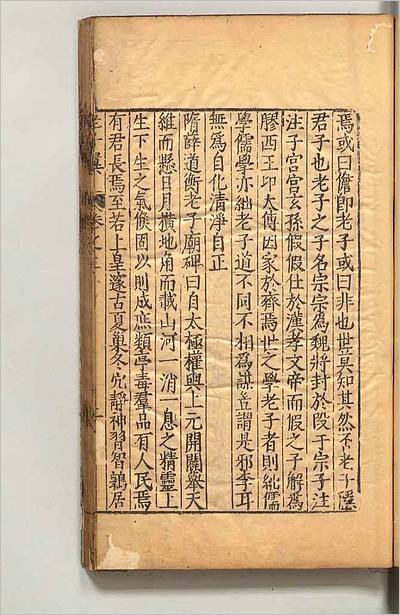 焉或曰儋即老子或曰非也世莫知其然不老子隱
君子也老子之子名宗宗為魏將封於段干宗子注
注子宮宮玄孫假假仕於漢孝文帝而假之子解為
膠西王卬太傅因家於齊焉世之學老子者則絀儒
學儒學亦絀老子道不同不相為謀豈謂是邪李耳
無為自化清淨自正
隋薛道衡老子廟碑曰自太極權輿上元開闢舉天
維而懸日月橫地角而載山河一消一息之精靈上
生下生之氣候固以財成庶類亭毒羣品有人民焉
有君長焉至若上皇邃古夏巢冬穴靜神習智鶉居
翼 卷之